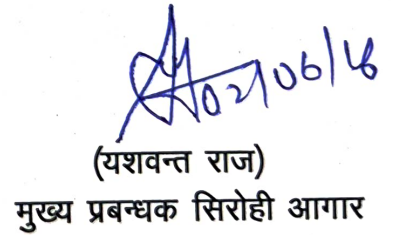 02/06/18
(यशवन्त राज)
मुख्य प्रबन्धक सिरोही आगार